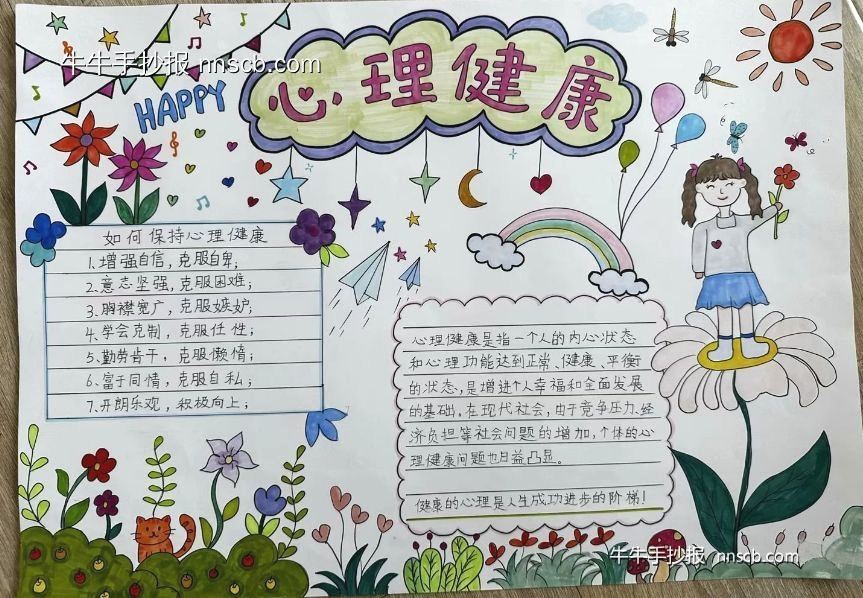 牛牛手抄报 nnscb.com
HAPPY
心理健康
如何保持心理健康
1、增强自信，克服自卑；
2、意志坚强，克服困难；
3、胸襟宽广，克服嫉妒；
4、学会克制，克服任性；
5、勤劳肯干，克服懒惰；
6、富于同情，克服自私；
7、开朗乐观，积极向上；
心理健康是指一个人的内心状态
和心理功能达到正常、健康、平衡
的状态，是增进个人幸福和全面发展
的基础。在现代社会，由于竞争压力、经
济负担等社会问题的增加，个体的心
理健康问题也日益凸显。
健康的心理是人生成功进步的阶梯！
牛牛手抄报 nnscb.com